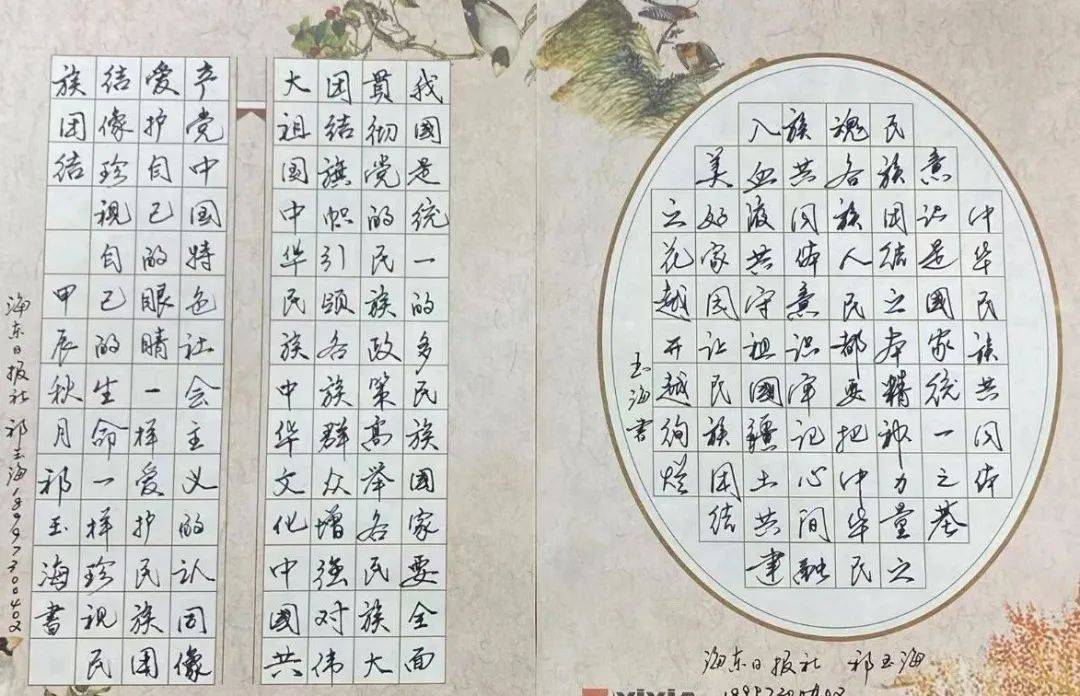 我國是统一的多民族国家要全面
貫彻党的民族政策高举各民族大
团结旗帜引领各族群众增强对伟
大祖国中华民族中华文化中國共
产党中国特色社会主义的认同像
爱护自己的眼睛一样爱护民族團
结像珍视自己的生命一样珍视民
族团结 甲辰秋月祁玉海書
海东日报社 祁玉海18997300402
中华民族共同体
意识是國家统一之基
民族团结之本精神力量之
魂各族人民都要把中华民
族共同体意识牢记心间融
入血液共守祖國疆土共建
美好家园让民族团结
之花越开越绚烂
玉海書
海东日报社 祁玉海